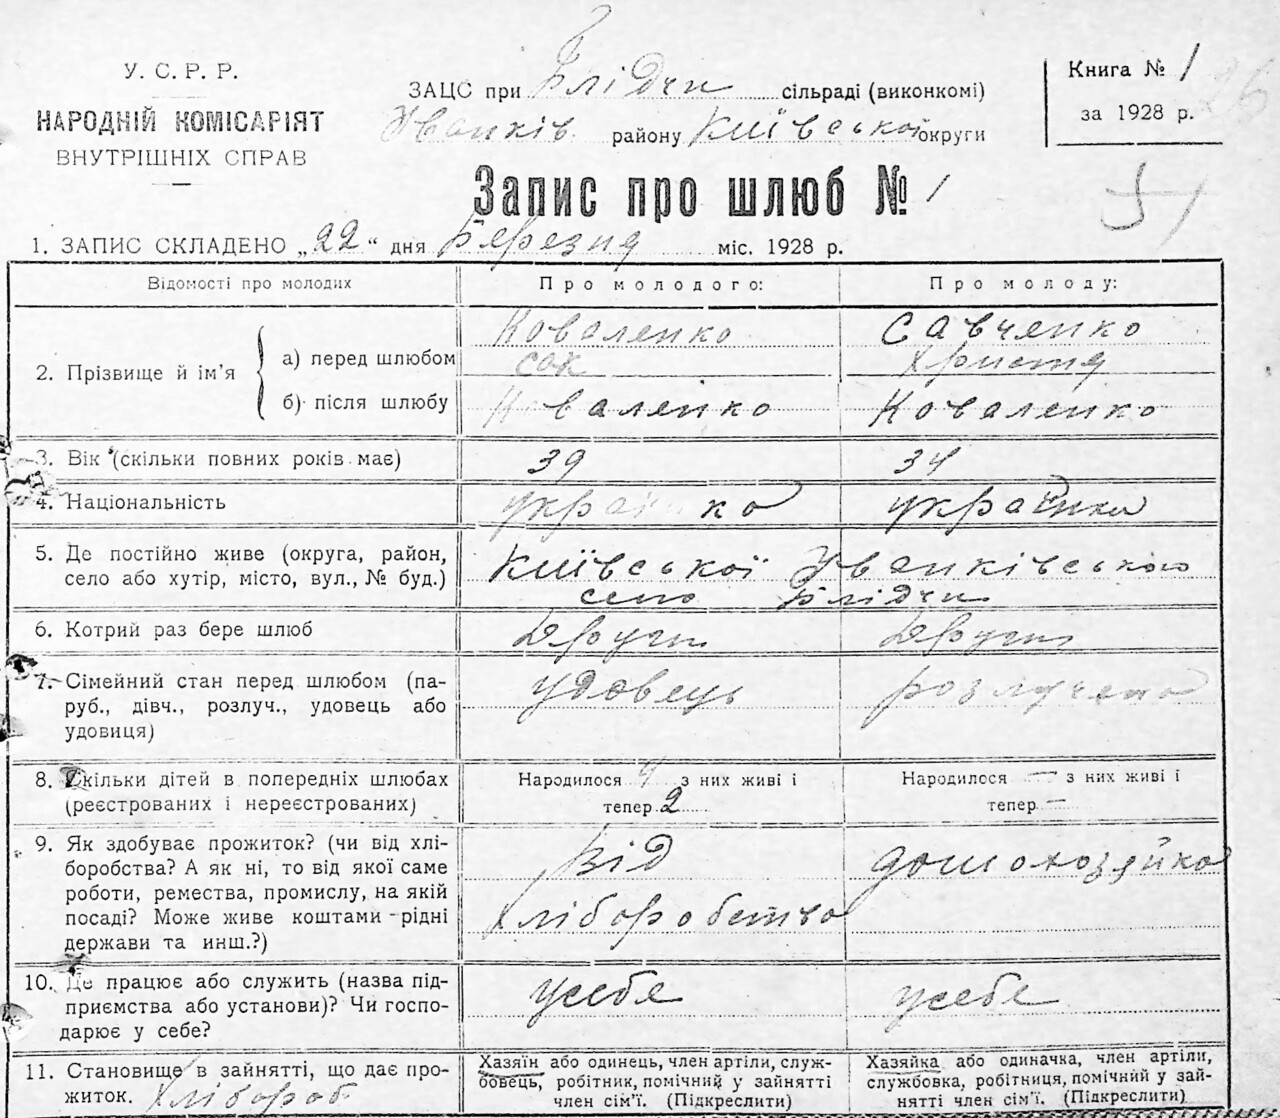 У. С. Р. Р.
НАРОДНІЙ КОМІСАРІЯТ
ВНУТРІШНІХ СПРАВ
ЗАЦС при Блідчи сільраді (виконкомі)
Иванків району Київської округи
Книга № 1
за 1928 р.
26
51
Запис про шлюб № 1
1. ЗАПИС СКЛАДЕНО „22“ дня Березня міс. 1928 р.
Відомості про молодих Про молодого: Про молоду:
2. Прізвище й ім'я
а) перед шлюбом Коваленко Савченко
Христя
б) після шлюбу Коваленко Коваленко
3. Вік (скільки повних років має) 39 34
4. Національність українко українка
5. Де постійно живе (округа, район, село або хутір, місто, вул., № буд.)
Київської Иванківського
село Блідчи
6. Котрий раз бере шлюб Другий Другий
7. Сімейний стан перед шлюбом (па-
руб., дівч., розлуч., удовець або
удовиця)
удовець розлучена
8. Скільки дітей в попередніх шлюбах
(реєстрованих і нереєстрованих)
Народилося 4 з них живі і
тепер 2
Народилося — з них живі і
тепер —
9. Як здобуває прожиток? (чи від хлі-
боробства? А як ні, то від якої саме
роботи, ремества, промислу, на якій
посаді? Може живе коштами рідні
держави та инш.?)
Від
Хліборобство
домохозяйка
10. Де працює або служить (назва під-
приємства або установи)? Чи госпо-
дарює у себе?
усебе усебе
11. Становище в зайнятті, що дає про-
житок. Хлібороб
Хазяїн або одинець, член артілі, служ-
бовець, робітник, помічний у зайнятті
член сім'ї. (Підкреслити)
Хазяйка або одиначка, член артілі,
службовка, робітниця, помічний у зай-
нятті член сім'ї. (Підкреслити)